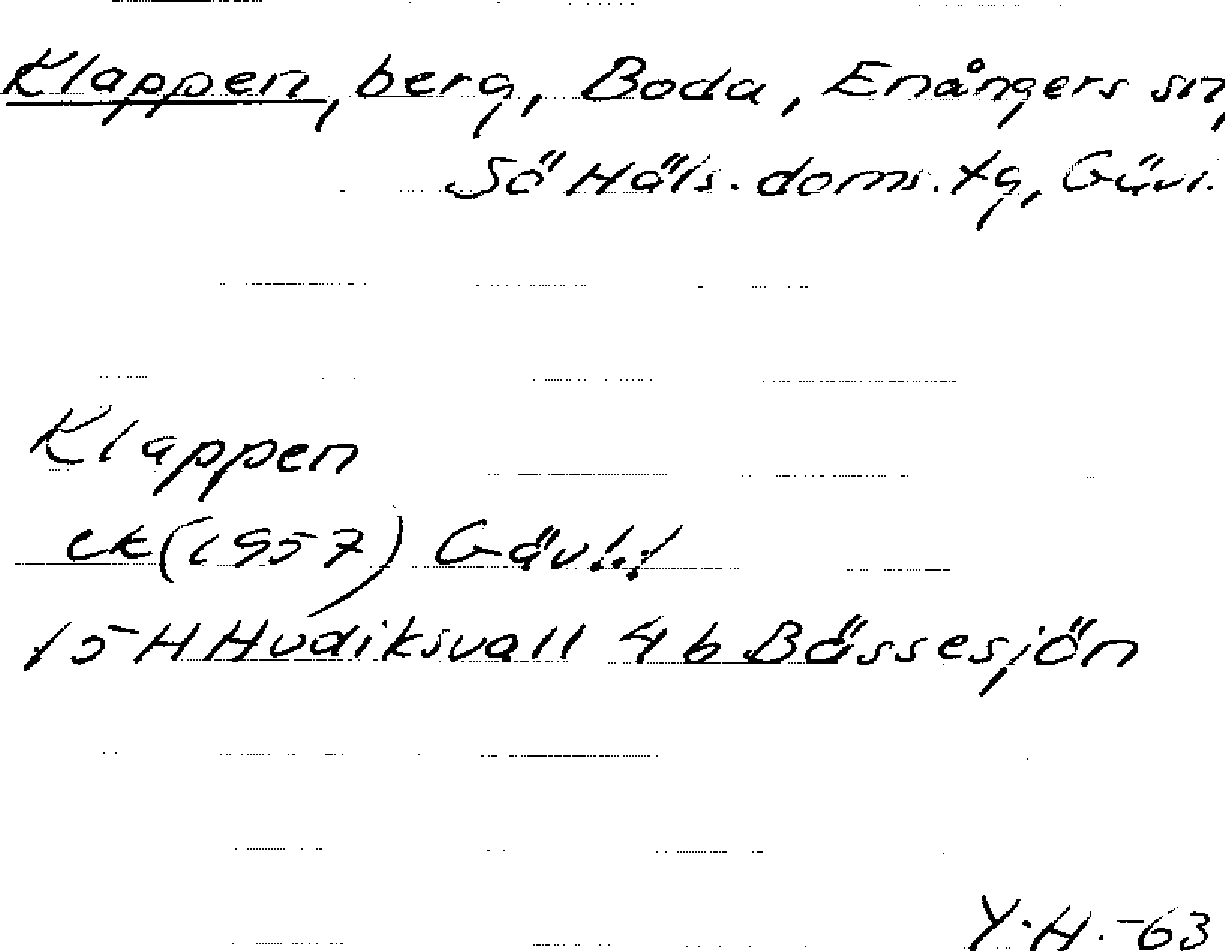 Klappen, berg, Boda, Enångers sn,
Sö Häls. doms. tg, Gävl.
Klappen
ek (1957) Gävl!
15 H Hudiksvall 4 b Bässesjön
Y.H. -63